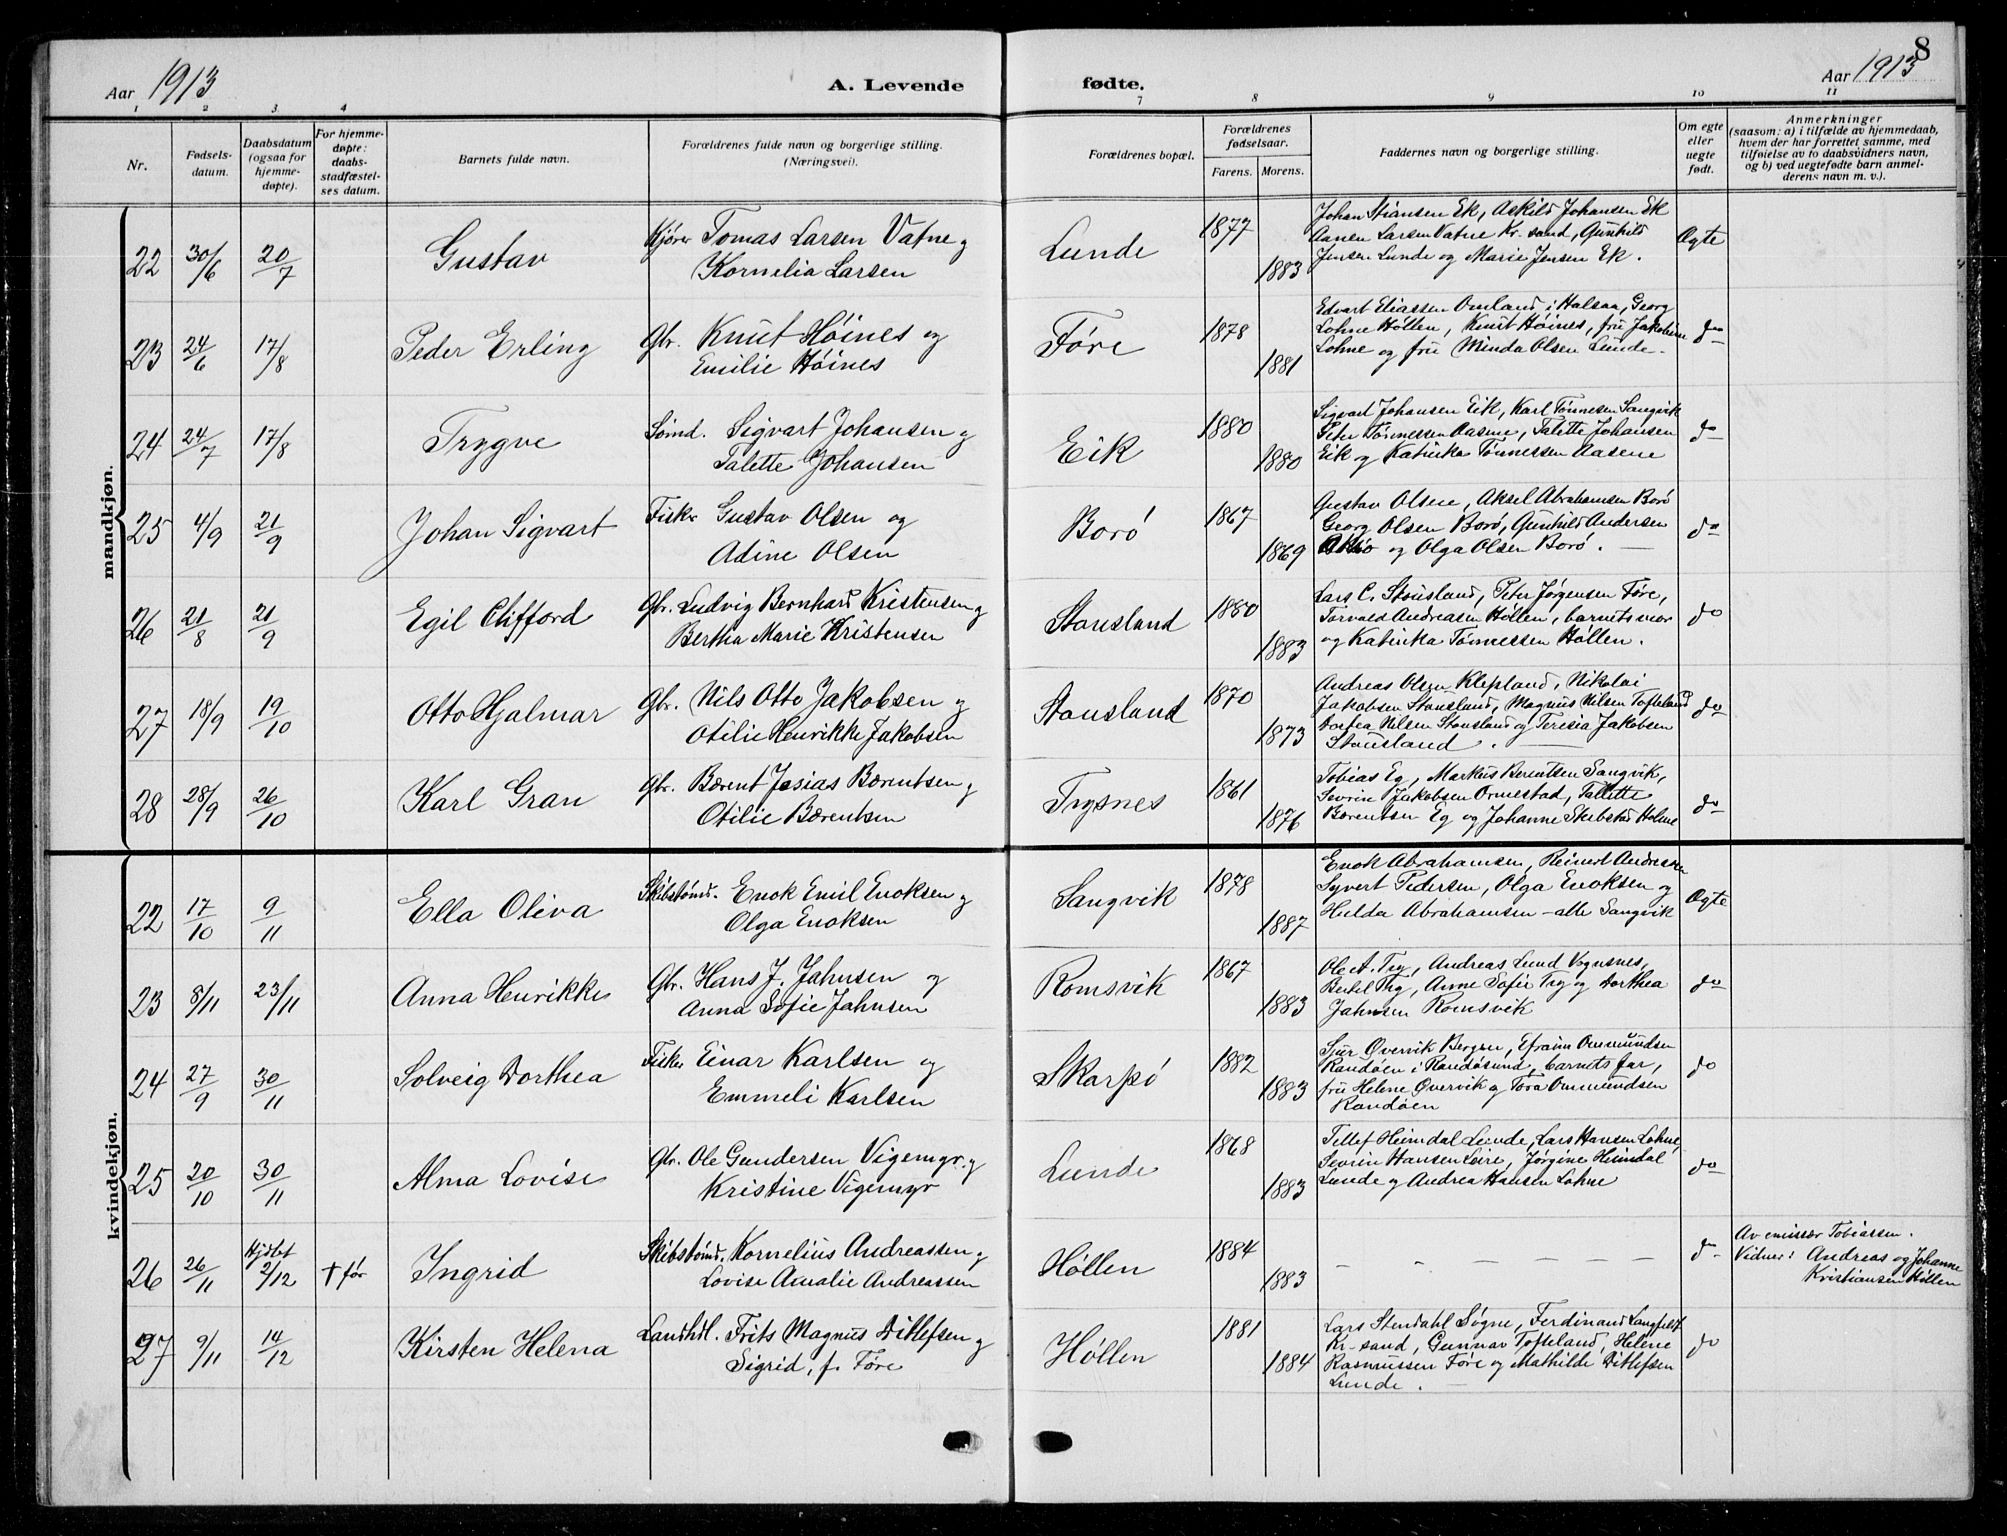 8
Aar 1913
A. Levende fødte.
Aar 1913
1 2 3 4 7 8 9 10 11
Nr.
Fødsels-
datum.
Daabsdatum
(ogsaa for
hjemme-
døpte).
For hjemme-
døpte:
daabs-
stadfæstel-
ses datum.
Barnets fulde navn.
Forældrenes fulde navn og borgerlige stilling.
(Næringsvei).
Forældrenes bopæl.
Forældrenes
fødselsaar.
Farens. Morens.
Faddernes navn og borgerlige stilling.
Om egte
eller
uegte
født.
Anmerkninger
(saasom: a) i tilfælde av hjemmedaab,
hvem der har forrettet samme, med
tilføielse av to daabsvidners navn,
og b) ved uegtefødte barn anmel-
derens navn m. v.).
mandkjøn.
22 30/6 20/7 Gustav
Kjører Tomas Larsen Vatne og
Kornelia Larsen
Lunde 1877 1883
Johan Stiansen Ek, Askild Johansen Ek
Aanen Larsen Vatne Kr-sand, Gunhild
Jensen Lunde og Marie Jensen Ek.
Ægte
23 24/6 17/8 Peder Erling
Gbr. Knut Høines og
Emilie Høines
Føre 1878 1881
Edvart Eliassen Omland i Halsaa, Georg
Lohne Høllen, Knut Høines, fru Jakobine
Lohne og fru Minda Olsen Lunde.
do
24 24/7 17/8 Trygve
Sømd. Sigvart Johansen og
Talette Johansen
Eik 1880 1880
Sigvart Johansen Eik, Karl Tønnesen Sangvik
Peter Tønnessen Aasene, Talette Johansen
Eik og Katinka Tønnessen Aasene
do
25 4/9 21/9 Johan Sigvart
Fisker Gustav Olsen og
Adine Olsen
Borø 1867 1869
Gustav Olsen, Aksel Abrahamsen Borø
Georg Olsen Borø, Gunhild Andersen
og Olga Olsen Borø.
do
26 21/8 21/9 Egil Clifford
Gbr. Ludvig Bernhard Kristensen og
Bertha Marie Kristensen
Stausland 1880 1883
Lars C. Stausland, Peter Jørgensen Føre,
Torvald Andreasen Høllen, barnets mor
og Katinka Tønnessen Høllen.
do
27 18/9 19/10 Otto Hjalmar
Gbr. Nils Otto Jakobsen og
Otilie Henrikke Jakobsen
Stausland 1870 1873
Andreas Olsen Klepland, Nikolai
Jakobsen Stausland, Magnus Nilsen Tofteland
Dortea Nilsen Stausland og Teresia Jakobsen
Stausland.
do
28 28/9 26/10 Karl Gran
Gbr. Bærent Josias Bærentsen og
Otilie Bærentsen
Trysnes 1861 1876
Tobias Eg, Markus Berentsen Sangvik,
Sevrin Jakobsen Ormestad, Tallette
Bærentsen Eg og Johanne Skibstad Holme
do
kvindekjøn.
22 17/10 9/11 Ella Oliva
Skibstømd. Enok Emil Enoksen og
Olga Enoksen
Sangvik 1878 1887
Enok Abrahamsen, Reinert Andreasen
Syvert Pedersen, Olga Enoksen og
Hulda Abrahamsen – alle Sangvik
Ægte
23 8/11 23/11 Anna Henrikke
Gbr. Hans J. Jahnsen og
Anna Sofie Jahnsen
Romsvik 1867 1883
Ole A. Try, Andreas Lund Vognsnes,
Bertel Try, Anne Sofie Try og Dorthea
Jahnsen Romsvik
do
24 27/9 30/11 Solveig Dorthea
Fisker Einar Karlsen og
Emmeli Karlsen
Skarpø 1882 1883
Sjur Øvervik Bergen, Efraim Ommundsen
Randøen i Randøsund, barnets far,
fru Helene Øvervik og Tora Ommundsen
Randøen
do
25 20/10 30/11 Alma Lovise
Gbr. Ole Gundersen Vigemyr og
Kristine Vigemyr
Lunde 1868 1883
Tellef Heimdal Lunde, Lars Hansen Lohne,
Sevrin Hansen Leire, Jørgine Heimdal
Lunde og Andrea Hansen Lohne
do
26 26/11 Hjdøbt 2/12 † før Ingrid
Skibstømd. Kornelius Andreassen og
Lovise Amalie Andreassen
Høllen 1884 1883
– – – – – –
do
Av emissær Tobiassen.
Vidner: Andreas og Johanne
Kristiansen Høllen
27 9/11 14/12 Kirsten Helena
Landhdl. Frits Magnus Ditlefsen og
Sigrid, f. Føre
Høllen 1881 1884
Lars Stendahl Søgne, Ferdinand Langfeldt
Kr-sand, Gunnar Tofteland, Helene
Rasmussen Føre og Mathilde Ditlefsen
Lunde.
do